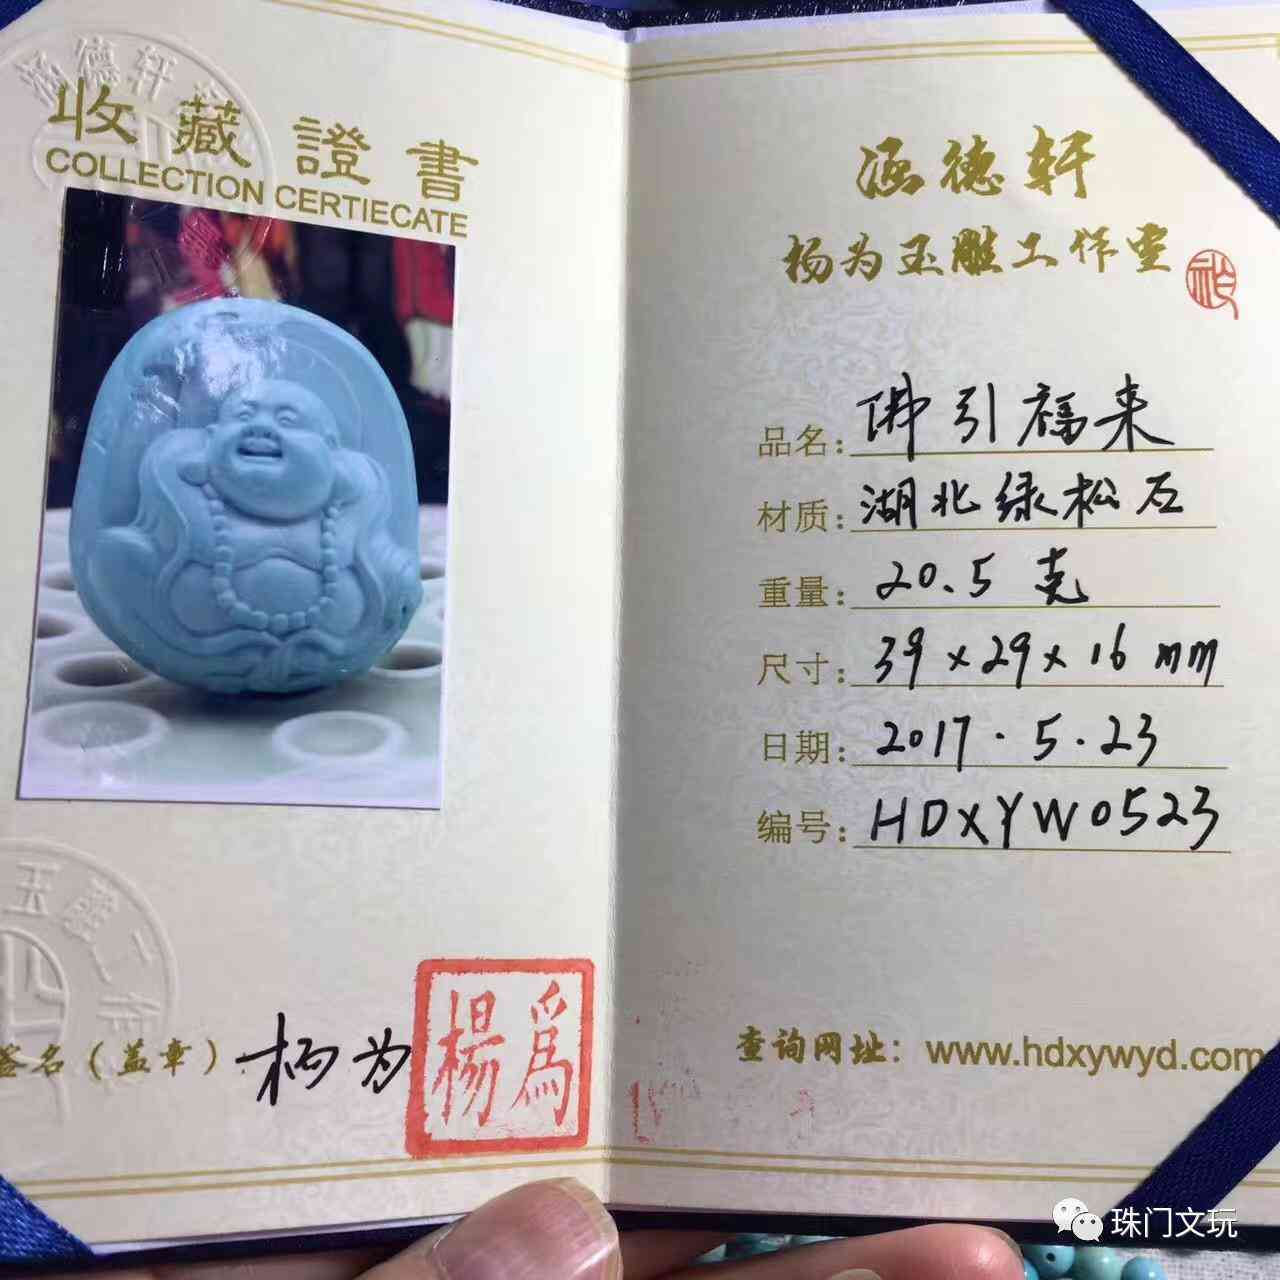 涵德轩
收藏證書
COLLECTION CERTIECATE
签名（盖章）杨为
楊為
涵德轩
杨为玉雕工作室
品名：佛引福来
材质：湖北绿松石
重量：20.5 克
尺寸：39×29×16 mm
日期：2017.5.23
编号：HDXYW0523
查询网址：www.hdxywyd.com
珠门文玩